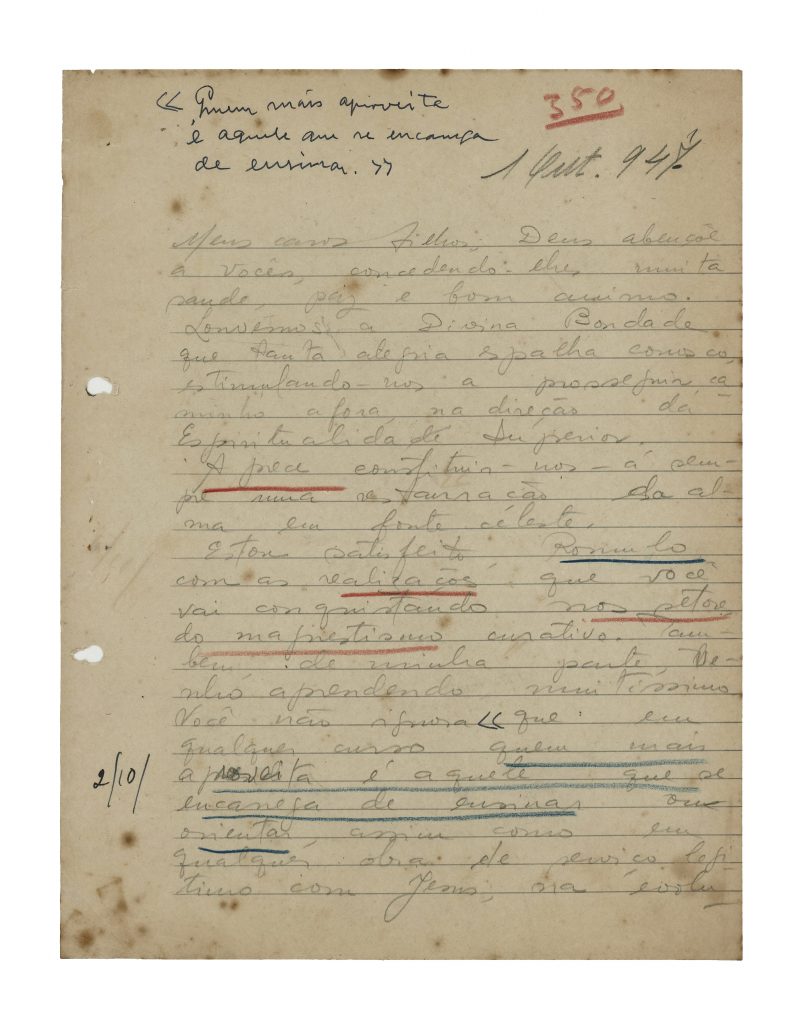 « Quem mais aproveita
é aquele que se encarrega
de ensinar. »
350
1 Out. 947
Meus caros filhos, Deus abençôe
a vocês, concedendo-lhes muita
saude, paz e bom animo.
Louvemos a Divina Bondade
que tanta alegria espalha comosco,
estimulando-nos a prosseguir, ca
minho a fora, na direção da
Espiritualidade Superior.
A prece constituir-nos-á sem-
pre uma restauração da al-
ma em fonte celeste.
Estou satisfeito, Romulo
com as realizações que você
vai conquistando nos setores
do magnetismo curativo. Tam-
bem de minha parte, ve-
nho aprendendo muitíssimo
Você não ignora « que em
qualquer curso quem mais
aproveita é aquele que se
2/10/
encarrega de ensinar ou
orientar, assim como em
qualquer obra de serviço legi-
timo com Jesus, na evolu_